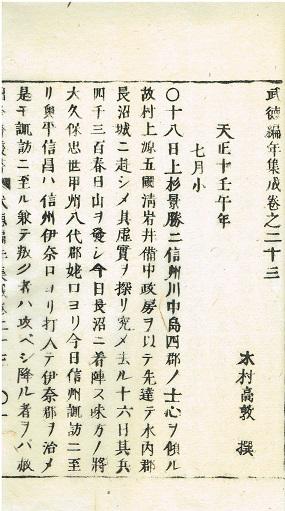 武徳編年集成巻之二十三
木村高敦 撰
天正十壬午年
七月小
〇十八日上杉景勝ニ信州川中島四郡ノ士心ヲ傾ル
故村上源五國清岩井備中政房ヲ以テ先達テ水内郡
長沼城ニ赴シメ其虚實ヲ探リ究メ去ル十六日其兵
四千三百春日山ヲ發シ今日長沼ニ着陣ス味方ノ將
大久保忠世甲州八代郡姥口ヨリ今日信州諏訪ニ至
リ奥平信昌ハ信州伊奈口ヨリ打入テ伊奈郡ヲ治メ
是モ諏訪ニ至ル敵テ叛ク者ハ攻ベシ降ル者ヲバ